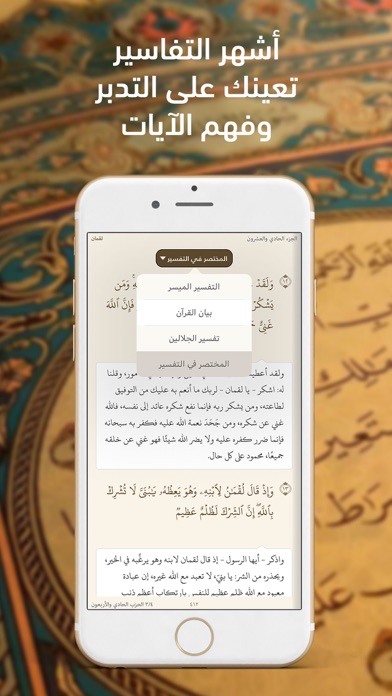 أشهر التفاسير
تعينك على التدبر
وفهم الآيات
الجزء الحادي والعشرون
لقمان
المختصر في التفسير
١٢ وَلَقَدْ
وَمَن
يَشْكُرْ
فَإِنَّ ٱللَّهَ
غَنِيٌّ
التفسير الميسر
بيان القرآن
تفسير الجلالين
المختصر في التفسير
ولقد أعطينا مور، وقلنا
له: اشكر - يا لقمان - لربك ما أنعم به عليك من التوفيق
لطاعته، ومن يشكر ربه فإنما نفع شكره عائد إلى نفسه، فالله
غني عن شكره، ومن جَحَدَ نعمة الله عليه فكفر به سبحانه
فإنما ضرر كفره عليه ولا يضر الله شيئًا فهو غني عن خلقه
جميعًا، محمود على كل حال.
١٣ وَإِذْ قَالَ لُقْمَٰنُ لِٱبْنِهِۦ وَهُوَ يَعِظُهُۥ يَٰبُنَىَّ لَا تُشْرِكْ
بِٱللَّهِۖ إِنَّ ٱلشِّرْكَ لَظُلْمٌ عَظِيمٌ
واذكر - أيها الرسول - إذ قال لقمان لابنه وهو يرغِّبه في الخير،
ويحذره من الشر: يا بنيّ، لا تعبد مع الله غيره، إن عبادة
معبود مع الله ظلم عظيم للنفس بارتكاب أعظم ذنب
٣/٤ الحزب الحادي والأربعون
٤١٢